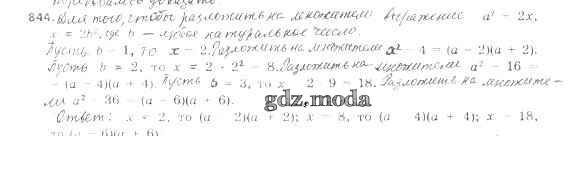 844. Для того, чтобы разложить на множители выражение a² − 2x,
x = 2b², где b − любое натуральное число.
Пусть b − 1, то x − 2. Разложить на множители a² − 4 = (a − 2)(a + 2);
Пусть b = 2, то x = 2 · 2² − 8. Разложить на множители a² − 16 =
− (a − 4)(a + 4). Пусть b = 3, то x 2 · 9 − 18. Разложить на множите-
ли a² − 36 − (a − 6)(a + 6).
gdz.moda
Ответ: x = 2, то (a 2)(a + 2); x = 8, то (a 4)(a + 4); x − 18,
то (a − 6)(a + 6)